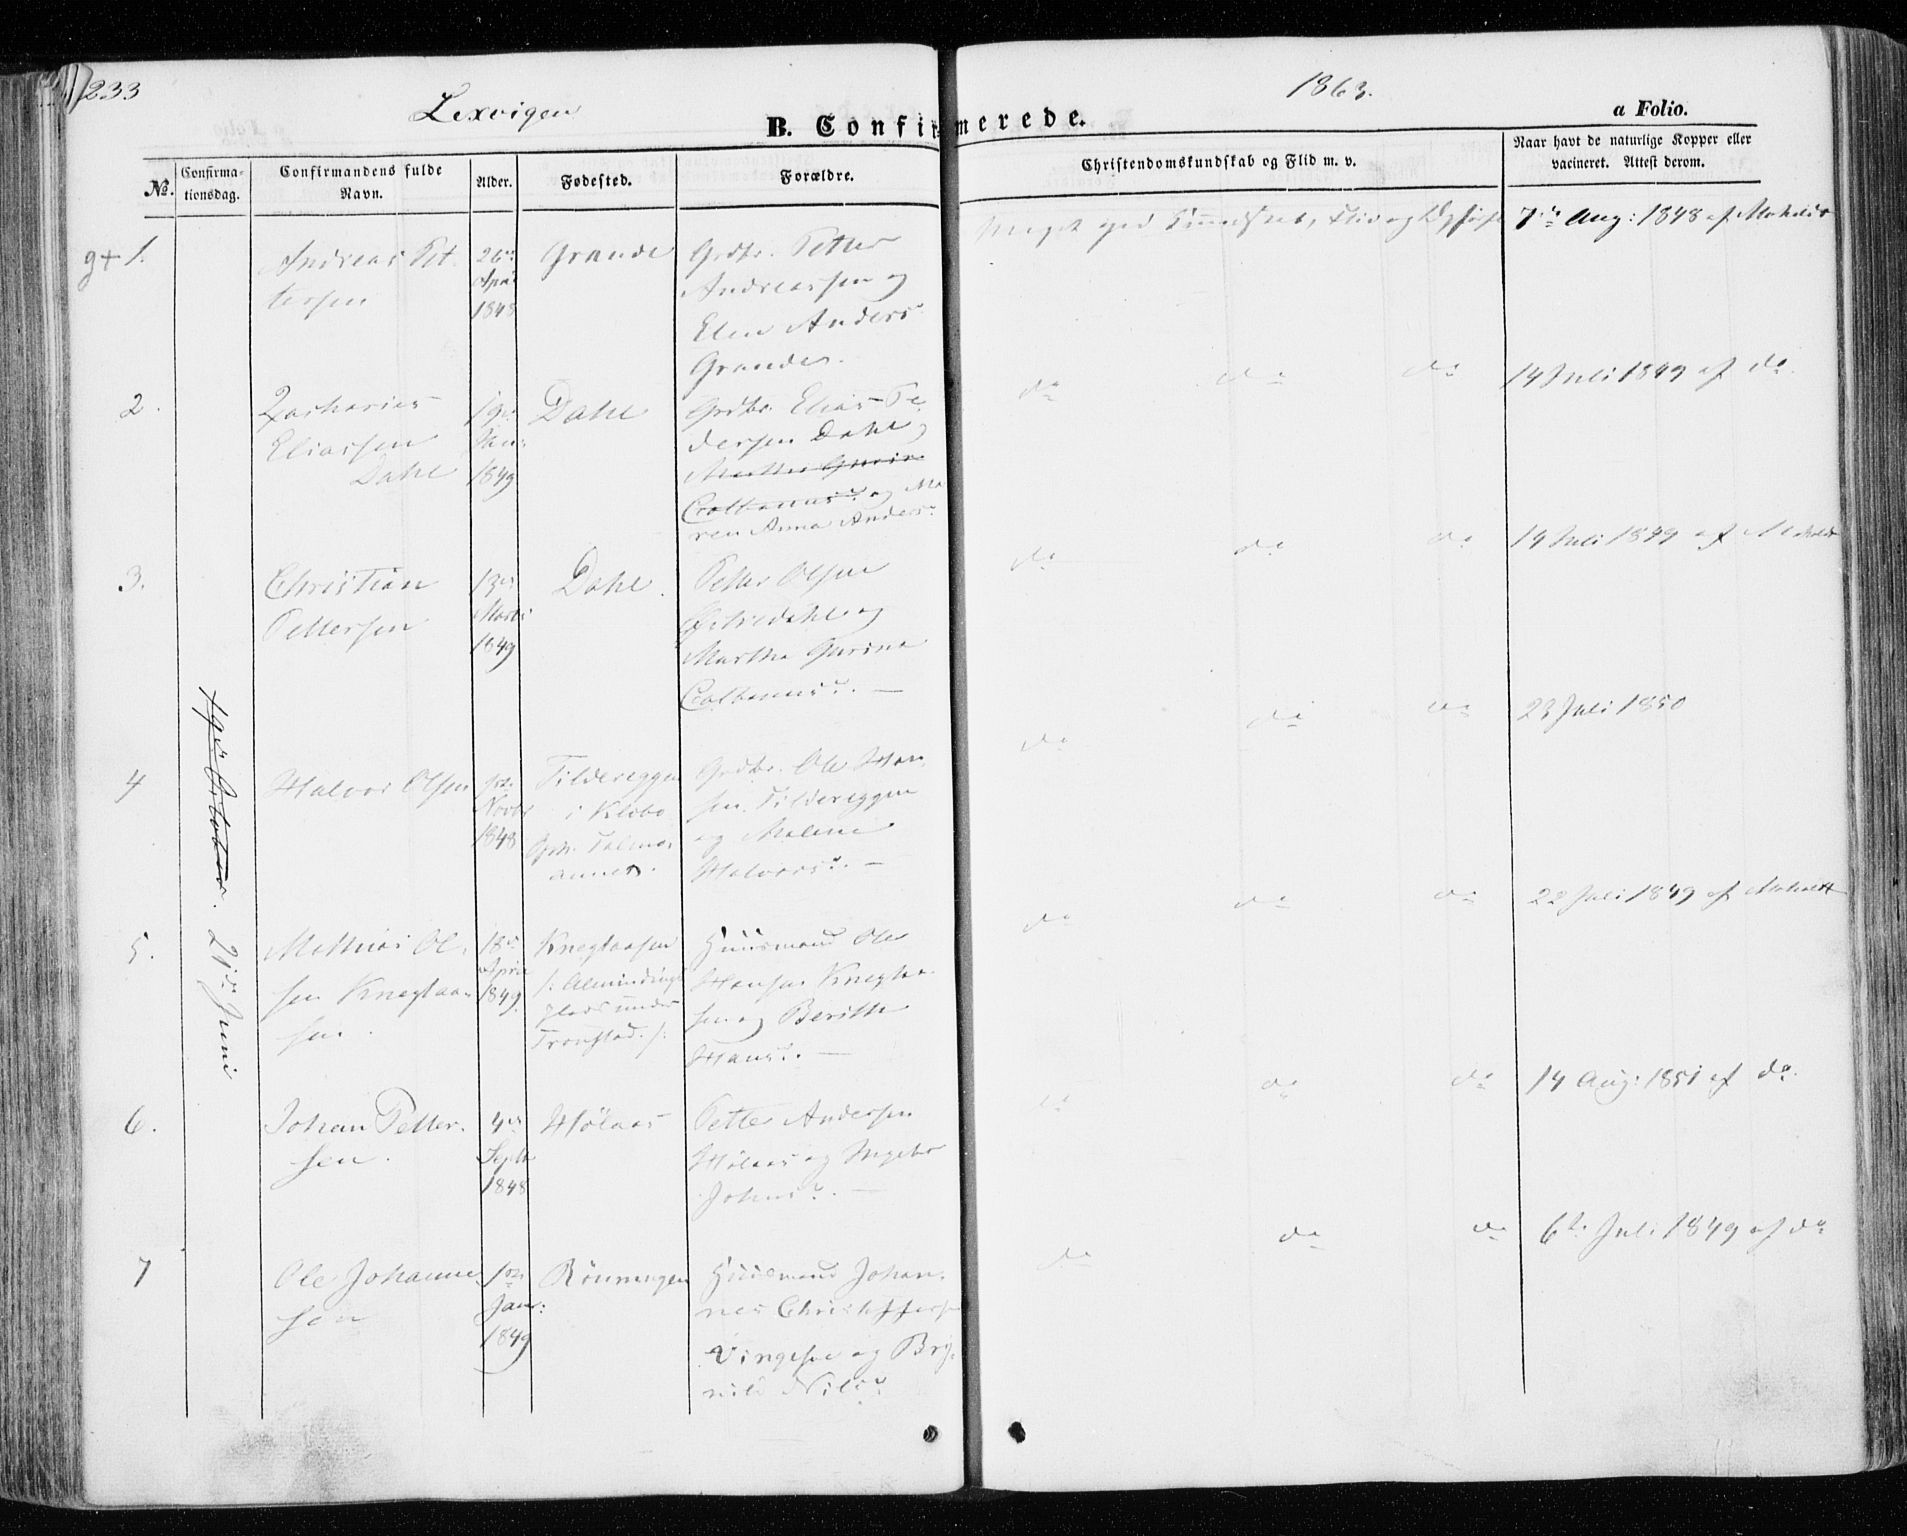 233
Lexvigen
1863.
B. Confirmerede.
a Folio.
No.
Confirma-
tionsdag.
Confirmandens fulde
Navn.
Alder.
Fødested.
Forældre.
Christendomskundskab og Flid m. v.
Naar havt de naturlige Kopper eller
vacineret. Attest derom.
g+ 1.
Andreas Pet-
tersen
26de
April
1848
Grande
Grdbr. Petter
Andreassen og
Elen Anders
Grande.
Meget god Kundskab, Flid og
7de Aug: 1848 af
2.
Zacharias
Eliassen
Dahl
19de
Jan:
1849
Dahl
Grdbr. Elias Pe-
dersen Dahl
og Ma-
ren Anna Andersd.
do do do
14 Juli 1849 af do.
3.
Christian
Pettersen
13de
Marts
1849
Dahl.
Petter Olsen
Østredahl og
Martha Gurina
do do do
14 Juli 1849 af
19de October. 21de Juni
4
Halvor Olsen
Novbr
1848
Tildereggen
i Klæbo
Grdbr. Ole Han-
sen Tildereggen
og Malene
Halvorsd. —
do do do
23 Juli 1850
5.
Mathias Ol-
sen Knegtaa-
sen.
18de
April
1849
Knegtaasen
/: Alminding-
plads under
Tronstad. :/
Huusmand Ole
Hansen Knegtaa-
sen og Berithe
Hansd. —
do do do
22 Juli 1849 af
6.
Johan Petter-
sen.
4de
Septbr
1848
Hølaas
Petter Andersen
Hølaas og Ingebor
Johnsd. —
do do do
14 Aug: 1851 af do.
7
Ole Johanne-
sen
1ste
Jan:
1849
Rönningen
Huusmand Johan-
nes Christoffersen
og Bry-
nild Nilsd.
do do do
6te Juli 1849 af do